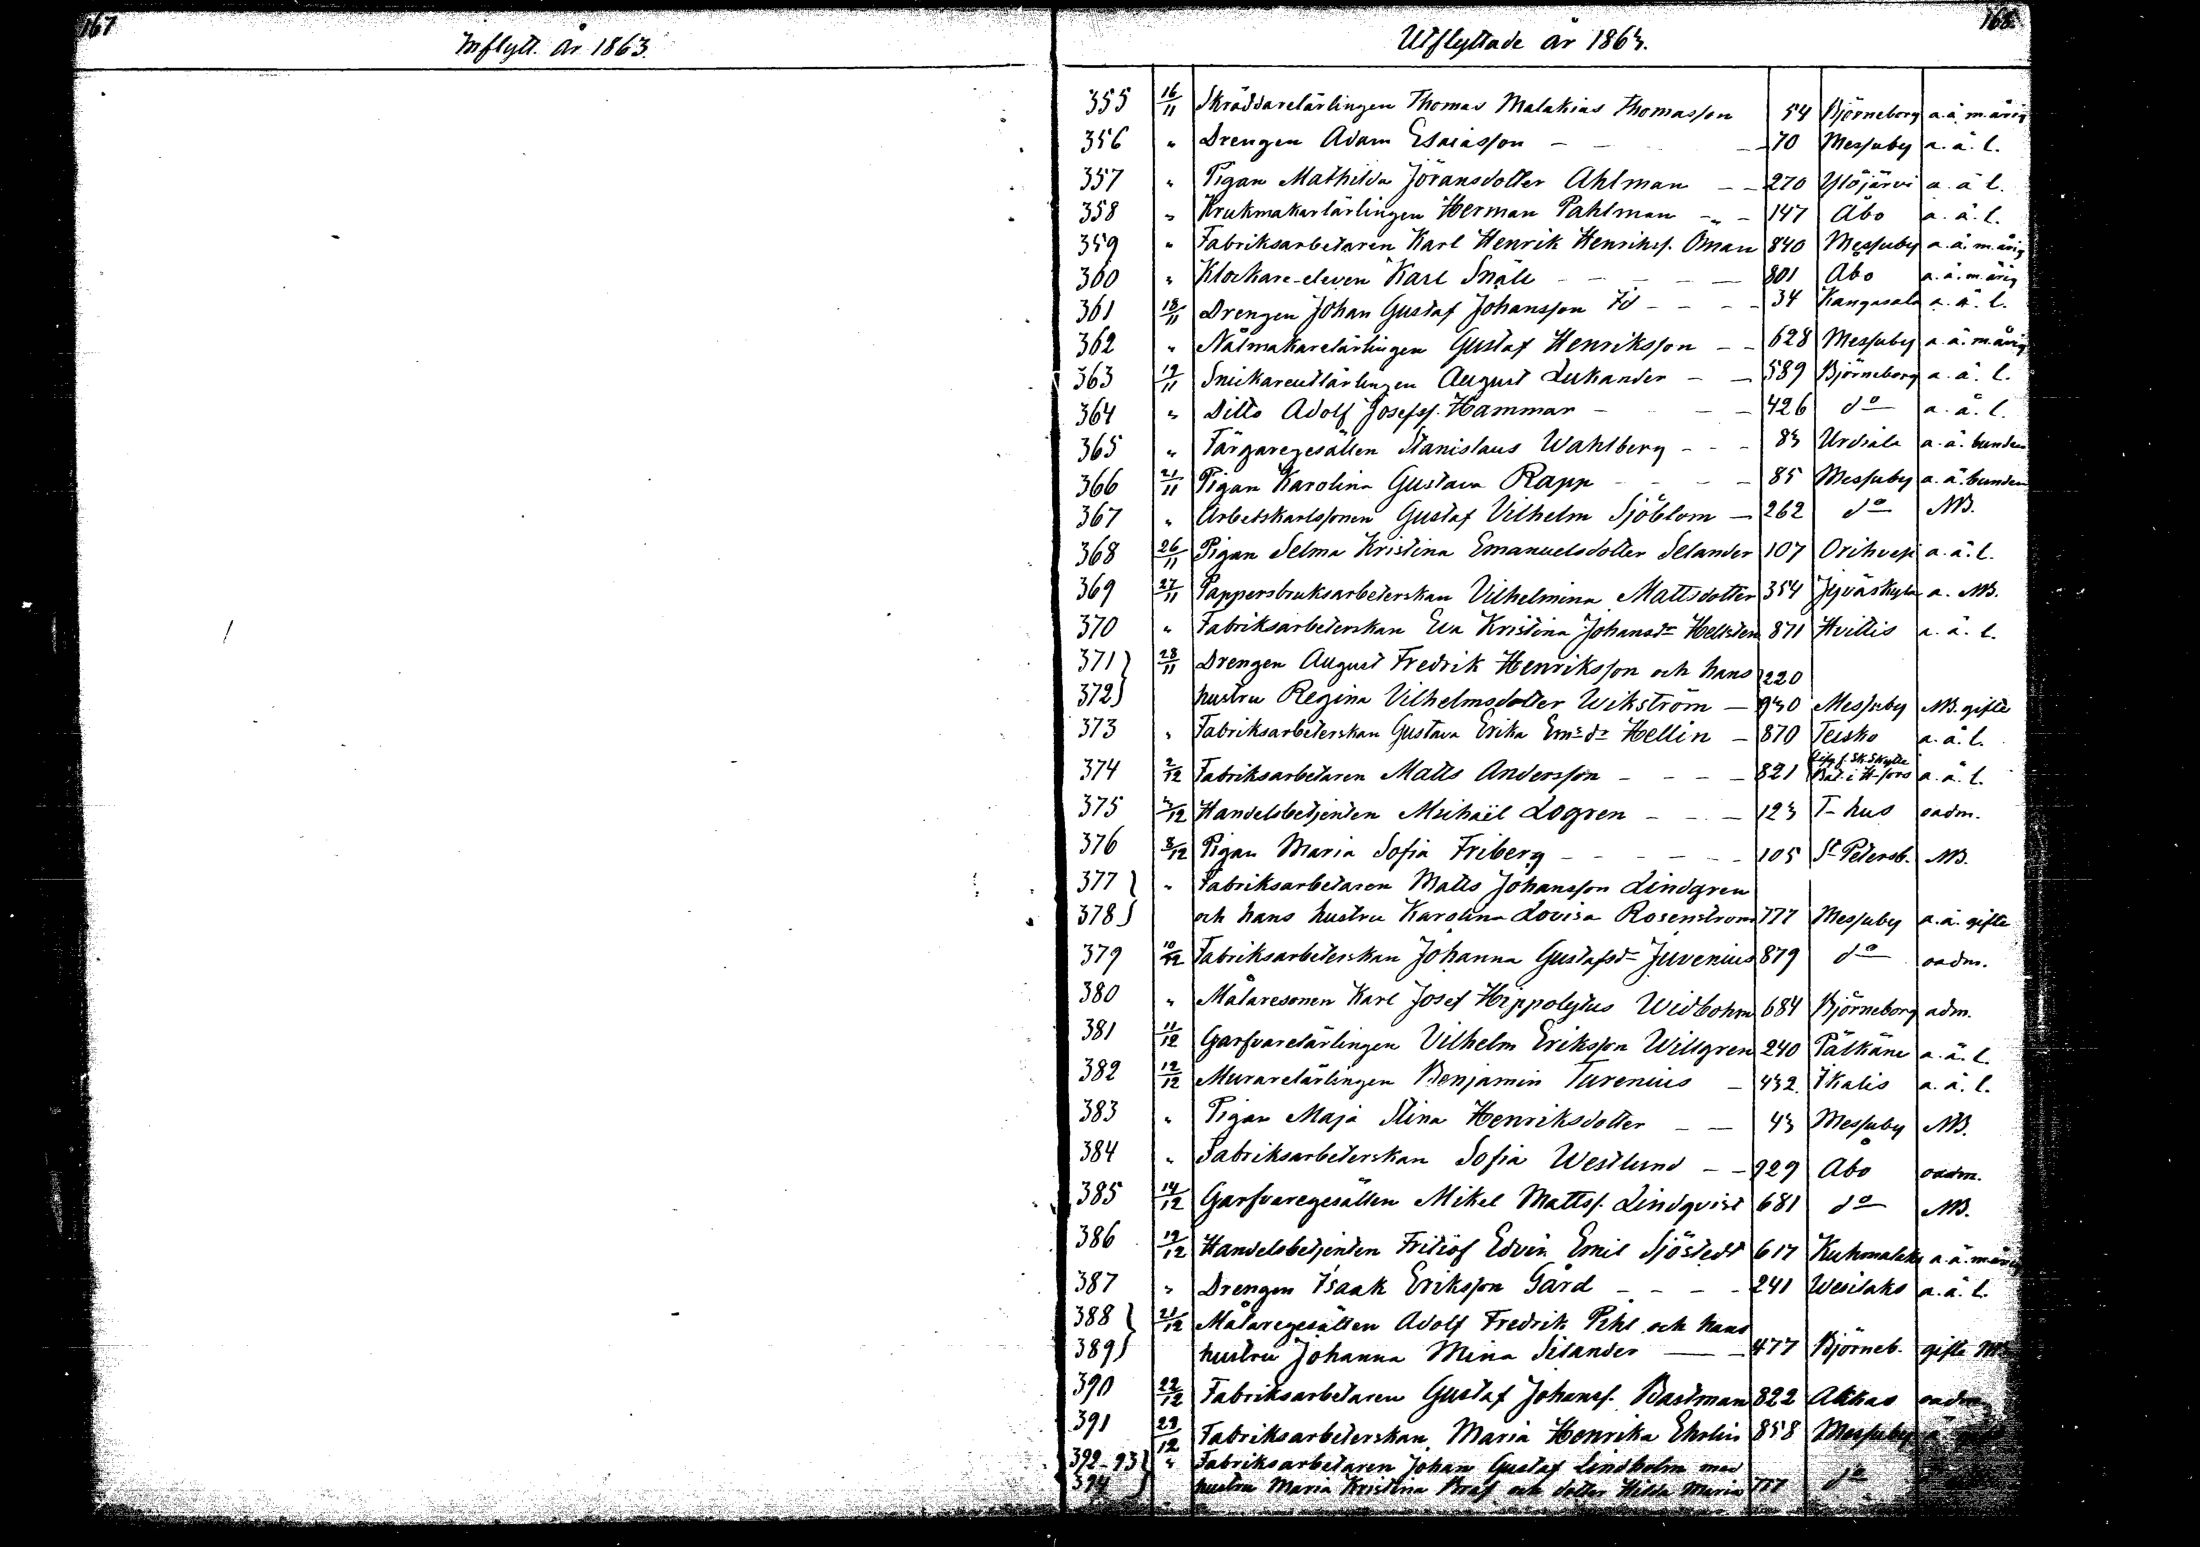 167
Inflytt. År 1863.
168.
Utflyttade år 1863.
355 16/11 Skräddarelärlingen Thomas Malakias Thomasson 54 Björneborg a.ä. m.årig
356 " Drengen Adam Esaiasson - - - 70 Messuby a.ä.l.
357 " Pigan Mathilda Jöransdotter Ahlman - - 270 Ylöjärvi a.ä.l.
358 " Krukmakarlärlingen Herman Pahlman - - 147 Åbo a.ä.l.
359 " Fabriksarbetaren Karl Henrik Henrikss. Öman 840 Messuby a.ä. m.årig
360 " Klockare-eleven Karl Snäll - - - - 801 Åbo a.ä. m.årig
361 18/11 Drengen Johan Gustaf Johansson Id - - - 34 Kangasala a.ä.l.
362 " Nålmakarelärlingen Gustaf Henriksson - - 628 Messuby a.ä. m.årig
363 19/11 Snickareutlärlingen August Lukander - - 589 Björneborg a.ä.l.
364 " Ditto Adolf Josefss. Hammar - - - 426 do a.ä.l.
365 " Färgaregesällen Stanislaus Wahlberg - - - 83 Urdiala a.ä. bunden
366 21/11 Pigan Karolina Gustava Rapp - - - - 85 Messuby a.ä. bunden
367 " Arbetskarlssonen Gustaf Vilhelm Sjöblom - 262 do NB.
368 26/11 Pigan Selma Kristina Emanuelsdotter Selander 107 Orihvesi a.ä.l.
369 27/11 Pappersbruksarbeterskan Vilhelmina Mattsdotter 354 Jyväskylä a. NB.
370 " Fabriksarbeterskan Eva Kristina Johansdr Hellsten 871 Hvittis a.ä.l.
371} 28/11 Drengen August Fredrik Henriksson och hans 220
372} hustru Regina Vilhelmsdotter Wikström - 930 Messuby NB. gifte
373 " Fabriksarbeterskan Gustava Erika Ems dr Hellin - 870 Teisko a.ä.l.
374 2/12 Fabriksarbetaren Matts Andersson - - - - 821 Lifg. f. Sk. Skytte Bat. i H-fors a.ä.l.
375 3/12 Handelsbetjenten Michaël Logren - - - 123 T-hus oadm.
376 8/12 Pigan Maria Sofia Friberg - - - - - 105 St Petersb. NB.
377} " Fabriksarbetaren Matts Johansson Lindgren
378} och hans hustru Karolina Lovisa Rosenstrom 777 Messuby a.ä. gifte
379 10/12 Fabriksarbeterskan Johanna Gustafsd Juvenius 879 do oadm.
380 " Målaresonen Karl Josef Hippolytus Widbohm 684 Björneborg adm.
381 11/12 Garfvarelärlingen Vilhelm Eriksson Willgren 240 Pälkäne a.ä.l.
382 12/12 Murarelärlingen Benjamin Turenius - 432. Ikalis a.ä.l.
383 " Pigan Maja Stina Henriksdotter - - 43 Messuby NB.
384 " Fabriksarbeterskan Sofia Westlund - - 929 Åbo oadm.
385 14/12 Garfvaregesällen Mikel Mattss. Lindqvist 681 do NB.
386 19/12 Handelsbetjenten Fritiof Edvin Emil Sjöstedt 617 Kuhmalaks a.ä. m.årig
387 " Drengen Isaak Eriksson Gård - - - - 241 Wesilaks a.ä.l.
388} 21/12 Målaregesällen Adolf Fredrik Pihl och hans
389} hustru Johanna Mina Selander - - 477 Björneb. gifte NB
390 22/12 Fabriksarbetaren Gustaf Johanss. Bastman 822 Akkas oadm
391 23/12 Fabriksarbeterskan Maria Henrika Ehrlin 858 Messuby
392-93} " Fabriksarbetaren Johan Gustaf Lindholm med
394} hustru Maria Kristina Braf och dotter Hilda Maria 777 do